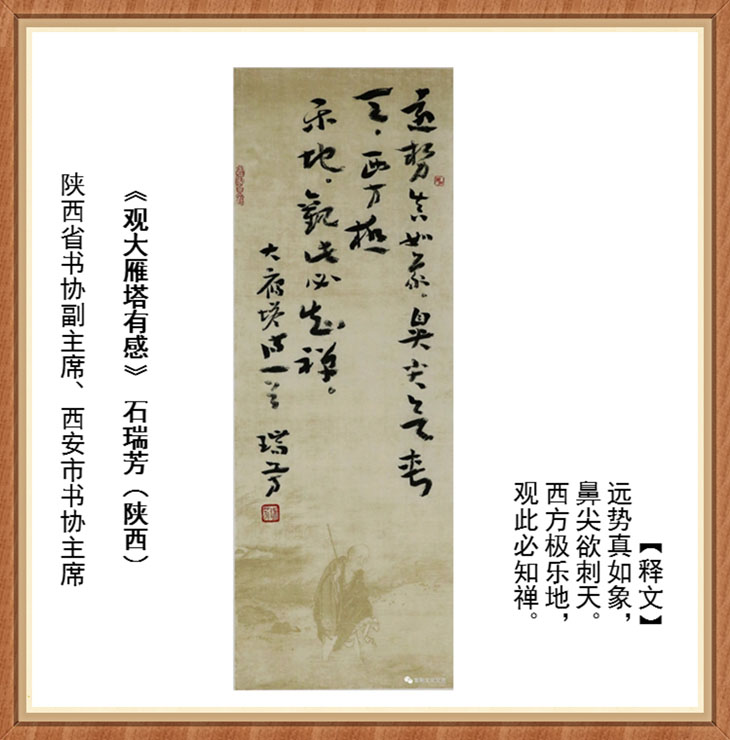 【释文】
远势真如象，
鼻尖欲刺天。
西方极乐地，
观此必知禅。
遠勢真如象。鼻尖欲刺
天。西方極
乐地。觀此必知禅。
大雁塔诗一首 瑞芳
《观大雁塔有感》 石瑞芳（陕西）
陕西省书协副主席、西安市书协主席